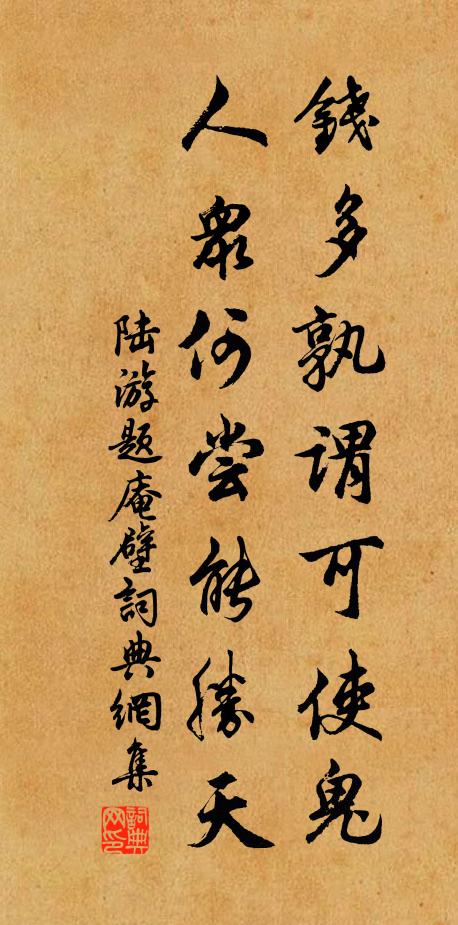 錢多孰謂可使鬼
人眾何嘗能勝天
陆游題庵壁詞典網集
詞典网印